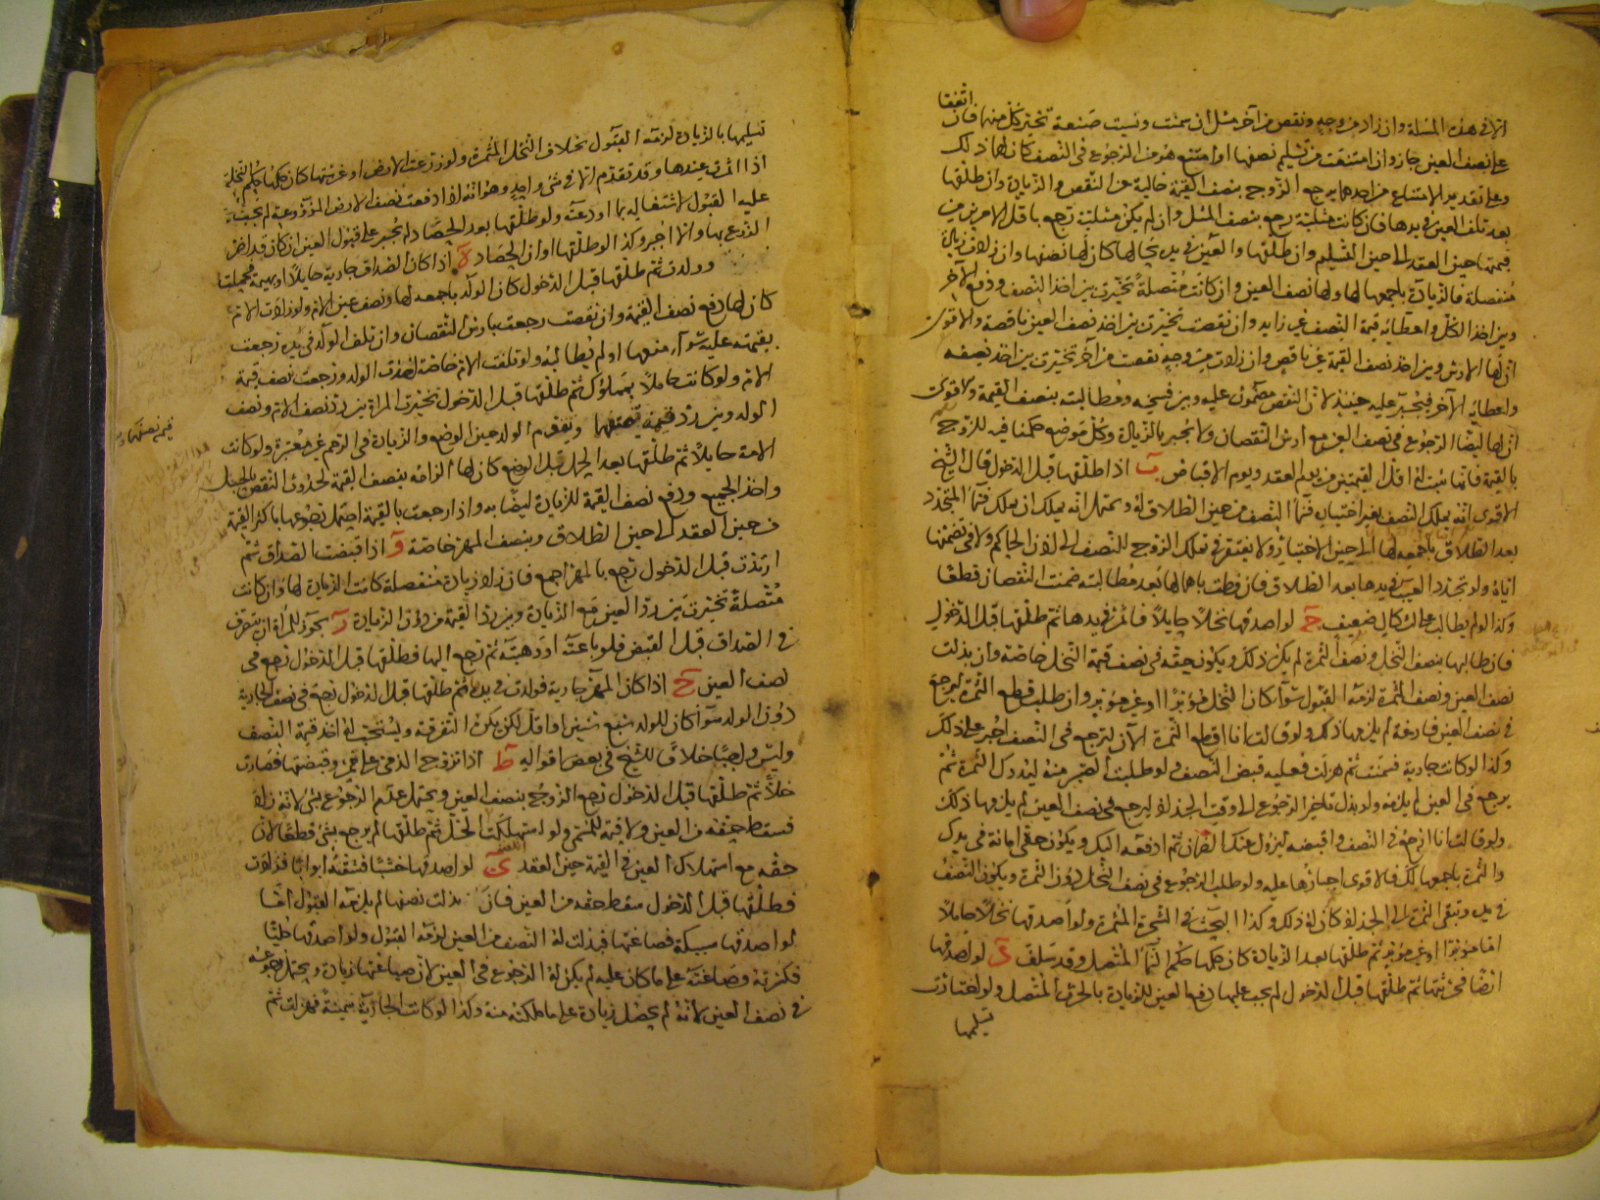 اتفقا
الا في هذه المسئلة وان زاد من وجه ونقص من آخر مثل ان سمنت ونسيت صنعة تخير كل منهما فان
على نصف العين جاز وان امتنعت من تسليم نصفها او امتنع هو من الرجوع في النصف كان لهما ذلك
وعلى تقدير الامتناع من احدهما يرجع الزوج بنصف القيمة خالية عن النقص والزيادة وان طلقها
بعد تلف العين في يدها فان كانت مثلية رجع بنصف المثل وان لم يكن مثلية رجع باقل الامرين من
قيمتها حين العقد الى حين التسليم وان طلقها والعين في يده بحالها كان لها نصفها وان زادت زيادة
منفصلة فالزيادة باجمعها لها ولها نصف العين وان كانت متصلة تخيرت بين اخذ النصف ودفع الآخر
وبين اخذ الكل واعطائه قيمة النصف غير زايد وان نقصت تخيرت بين اخذ نصف العين ناقصة والاقوى
ان لها الارش وبين اخذ نصف القيمة غير ناقص وان زادت من وجه ونقصت من آخر تخيرت بين اخذ نصفه
واعطائه الآخر فيجبر عليه حينئذ لان النقص مضمون عليه وبين فسخه ومطالبته بنصف القيمة والاقوى
ان لها ايضا الرجوع في نصف العين مع ارش النقصان ولا يجبر بالزيادة وكل موضع حكمنا فيه للزوج
بالقيمة فانما يثبت له اقل القيمتين من يوم العقد ويوم الاقباض ب اذا طلقها قبل الدخول قال الشيخ
الاقوى انه يملك النصف بغير اختياره فنماء النصف من حين الطلاق له ويحتمل انه يملك ان يملك فنماء المتجدد
بعد الطلاق باجمعه لها الى حين الاختيار ولا يفتقر في تملك الزوج للنصف الى اذن الحاكم ولا في تضمنها
اياه ولو تجدد العيب في يدها بعد الطلاق فان فرطت باهمالها بعد مطالبته ضمنت النقصان قطعا
وكذا لو لم يطالب على اشكال ضعيف ج لو اصدقها نخلا حايلا فاثمر في يدها ثم طلقها قبل الدخول
فان طالبها بنصف النخل ونصف الثمرة لم يكن ذلك ويكون حقه في نصف قيمة النخل خاصة وان بذلت
نصف العين ونصف الثمرة لزمه القبول سواء كان النخل مؤبرا او غير مؤبر وان طلب قطع الثمرة ليرجع
في نصف العين فارغة لم يلزمها ذلك ولو قالت انا اقطع الثمرة الآن لترجع في النصف اجبر على ذلك
وكذا لو كانت جارية فسمنت ثم هزلت فعليه قبض النصف ولو طلبت الصبر منه ليدرك الثمرة ثم
يرجع في العين لم يلزمه ولو بذل تاخير الرجوع الى وقت الجذاذ ليرجع في نصف العين لم يلزمها ذلك
ولو قال انا ارجع في النصف واقبضه ليزول عنك الضمان ثم ادفعه اليك ويكون حقي امانة في يدك
والثمرة باجمعها لك فالاقوى اجبارها عليه ولو طلب الرجوع في نصف النخل دون الثمرة ويكون النصف
في يده وتبقى الثمرة الى الجذاذ كان له ذلك وكذا البحث في الشجرة المثمرة ولو اصدقها نخلا حاملا
اما مؤبرا او غير مؤبر ثم طلقها بعد الزيادة كان حكمها حكم النماء المتصل وقد سلف د لو اصدقها
ارضا فحرثتها ثم طلقها قبل الدخول لم يجب عليها دفع العين للزيادة بالحرث المتصل ولو اختارت
تسليمها
تسليمها بالزيادة لزمه القبول بخلاف النخل المثمرة ولو زرعت الارض او غرستها كان حكمها حكم النخلة
اذا اثمرت عندها وقد تقدم الا في شئ واحد وهو انه اذا دفعت نصف الارض المزروعة لم يجب
عليه القبول لاشتغاله بما اودعته ولو طلقها بعد الحصاد لم يجبر على قبول العين ان كان قد اضر
الزرع بها والا اجبر وكذا لو طلقها اوان الحصاد ه اذا كان الصداق جارية حايلا او بهيمة فحملت
وولدت ثم طلقها قبل الدخول كان الولد باجمعه لها ونصف عين الام ولو زادت الام
كان لها دفع نصف القيمة وان نقصت رجعت بارش النقصان وان تلف الولد في يده رجعت
بقيمته عليه سواء منعها او لم يطالبه ولو تلفت الام خاصة اخذت الولد ورجعت بنصف قيمة
الام ولو كانت حاملا بمملوك ثم طلقها قبل الدخول تخيرت المراة بين رد نصف الام ونصف
الولد وبين رد قيمة نصفها ويقوم الولد حين الوضع والزيادة في الرحم غير معتبرة ولو كانت
قيمة نصفهما
الامة حايلا ثم طلقها بعد الحمل قبل الوضع كان لها الزامه بنصف القيمة لحدوث النقص بالحبل
واخذ الجميع ودفع نصف القيمة للزيادة ايضا به واذا رجعت بالقيمة احتمل رجوعها باكثر القيمة
من حين العقد الى حين الطلاق وبنصف المهر خاصة و اذا قبضت الصداق ثم
ارتدت قبل الدخول رجع بالمهر اجمع فان زاد زيادة منفصلة كانت الزيادة لها وان كانت
متصلة تخيرت بين رد العين مع الزيادة وبين رد القيمة من دون الزيادة ز يجوز للمراة ان يتصرف
في الصداق قبل القبض فلو باعته او وهبته ثم رجع اليها فطلقها قبل الدخول رجع في
نصف العين ح اذا كان المهر جارية فولدت في يده ثم طلقها قبل الدخول رجع في نصف الجارية
دون الولد سواء كان للولد سبع سنين او اقل لكن يكره التفرقة ويستحب له اخذ قيمة النصف
وليس واجبا خلافا للشيخ في بعض اقواله ط اذا تزوج الذمي على خمر وقبضتها فصارت
خلا ثم طلقها قبل الدخول رجع الزوج بنصف العين ويحتمل عدم الرجوع بشئ لانه زاد
فسقط حقه من العين ولا قيمة للخمر ولو استهلكت الخل ثم طلقها لم يرجع بشئ قطعا لان
حقه مع استهلاك العين في القيمة حين العقد ى لو اصدقها خشبا فشقته ابوابا فزادت
فطلقها قبل الدخول سقط حقه من العين فان بذلت نصفها لم يلزمه القبول اما
لو اصدقها سبيكة فصاغتها فبذلت له النصف من العين لزمه القبول ولو اصدقها حليا
فكسرته وصاغته على ما كان عليه لم يكن له الرجوع في العين لان صياغتها زيادة ويحتمل رجوعه
في نصف العين لانه لم يحصل زيادة على ما ملكته منه وكذا لو كانت الجارية سمينة فهزلت ثم